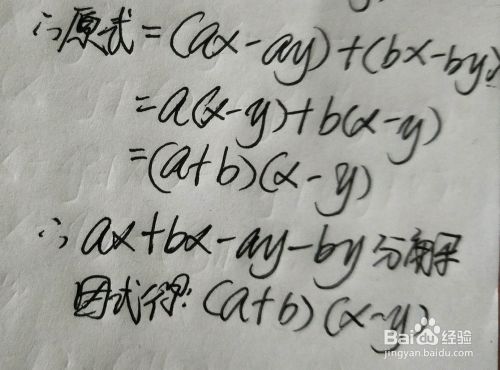 ∴原式=(ax-ay)+(bx-by)
=a(x-y)+b(x-y)
=(a+b)(x-y)
∴ax+bx-ay-by分解
因式得:(a+b)(x-y)
Baidu经验
jingyan.baidu.com